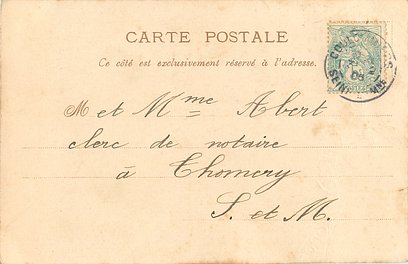 CARTE POSTALE
Ce côté est exclusivement réservé à l'adresse.
M et Mme Abert
clerc de notaire
à Thomery
S. et M.